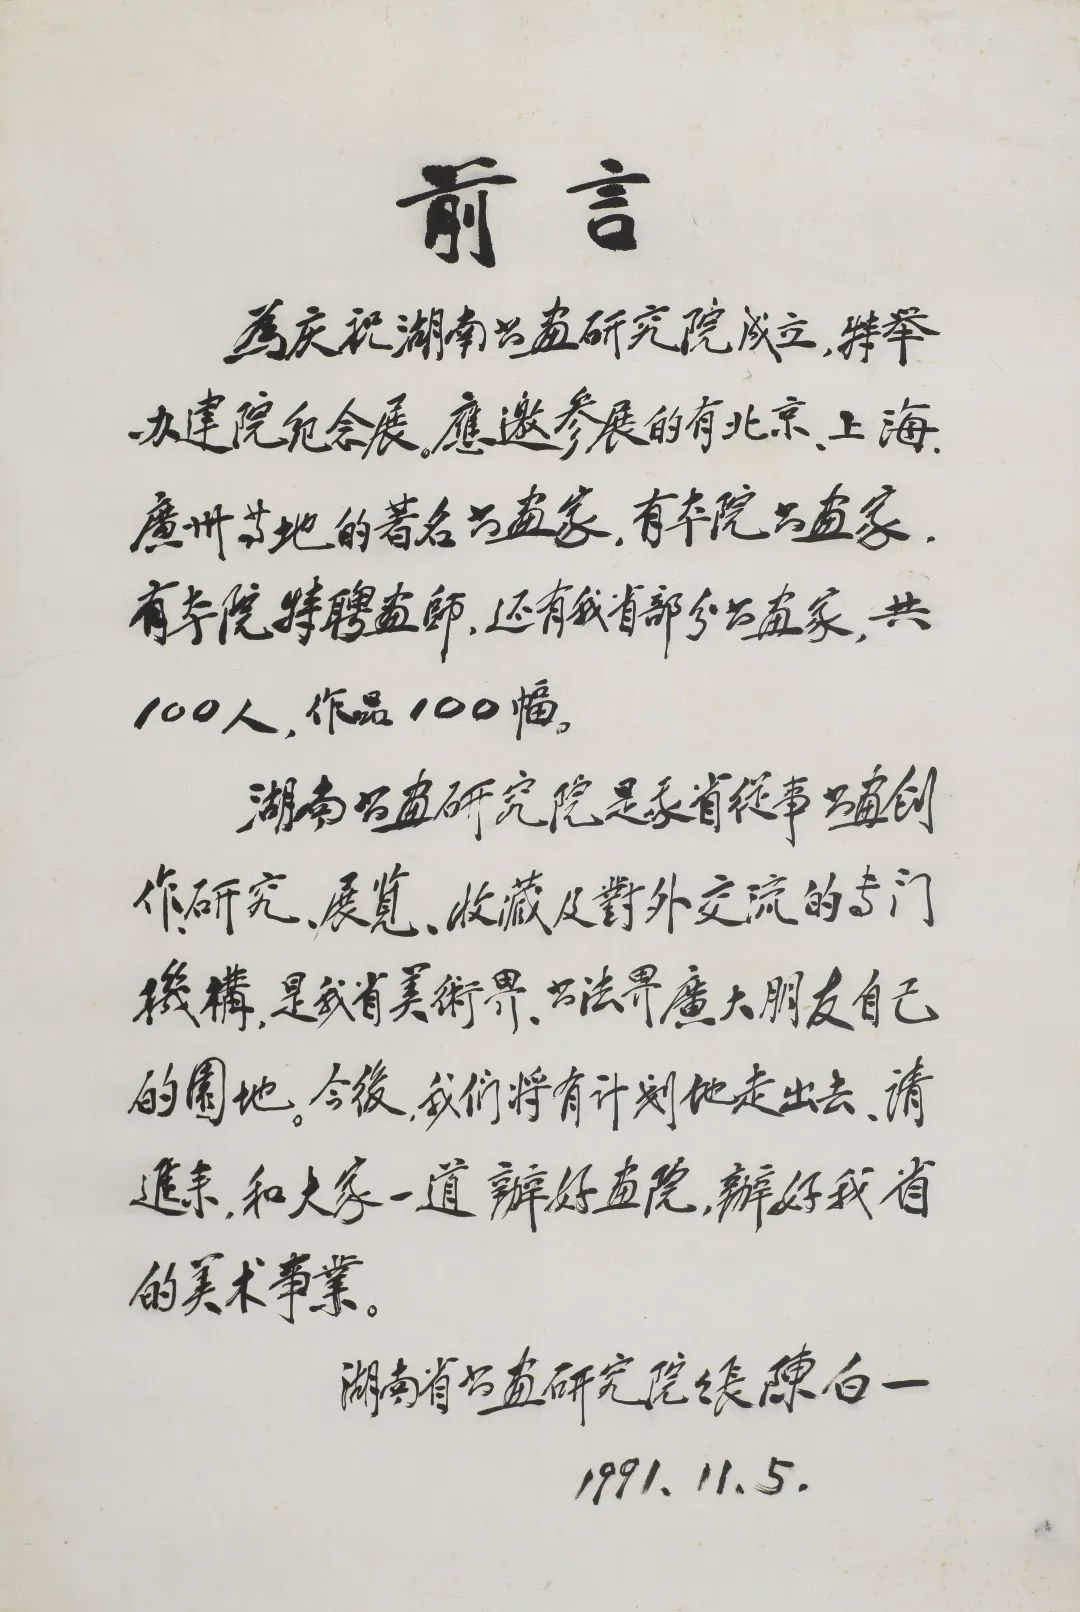 前言
為庆祝湖南书画研究院成立,特举
办建院纪念展。應邀参展的有北京、上海、
廣州等地的著名书画家,有本院书画家,
有本院特聘画師,还有我省部分书画家,共
100人,作品100幅。
湖南书画研究院是我省從事书画创
作、研究、展览、收藏及對外交流的专门
機構,是我省美術界、书法界廣大朋友自己
的園地。今後,我们将有计划地走出去、请
進来,和大家一道辦好画院,辦好我省
的美术事業。
湖南省书画研究院院長陳白一
1991.11.5.